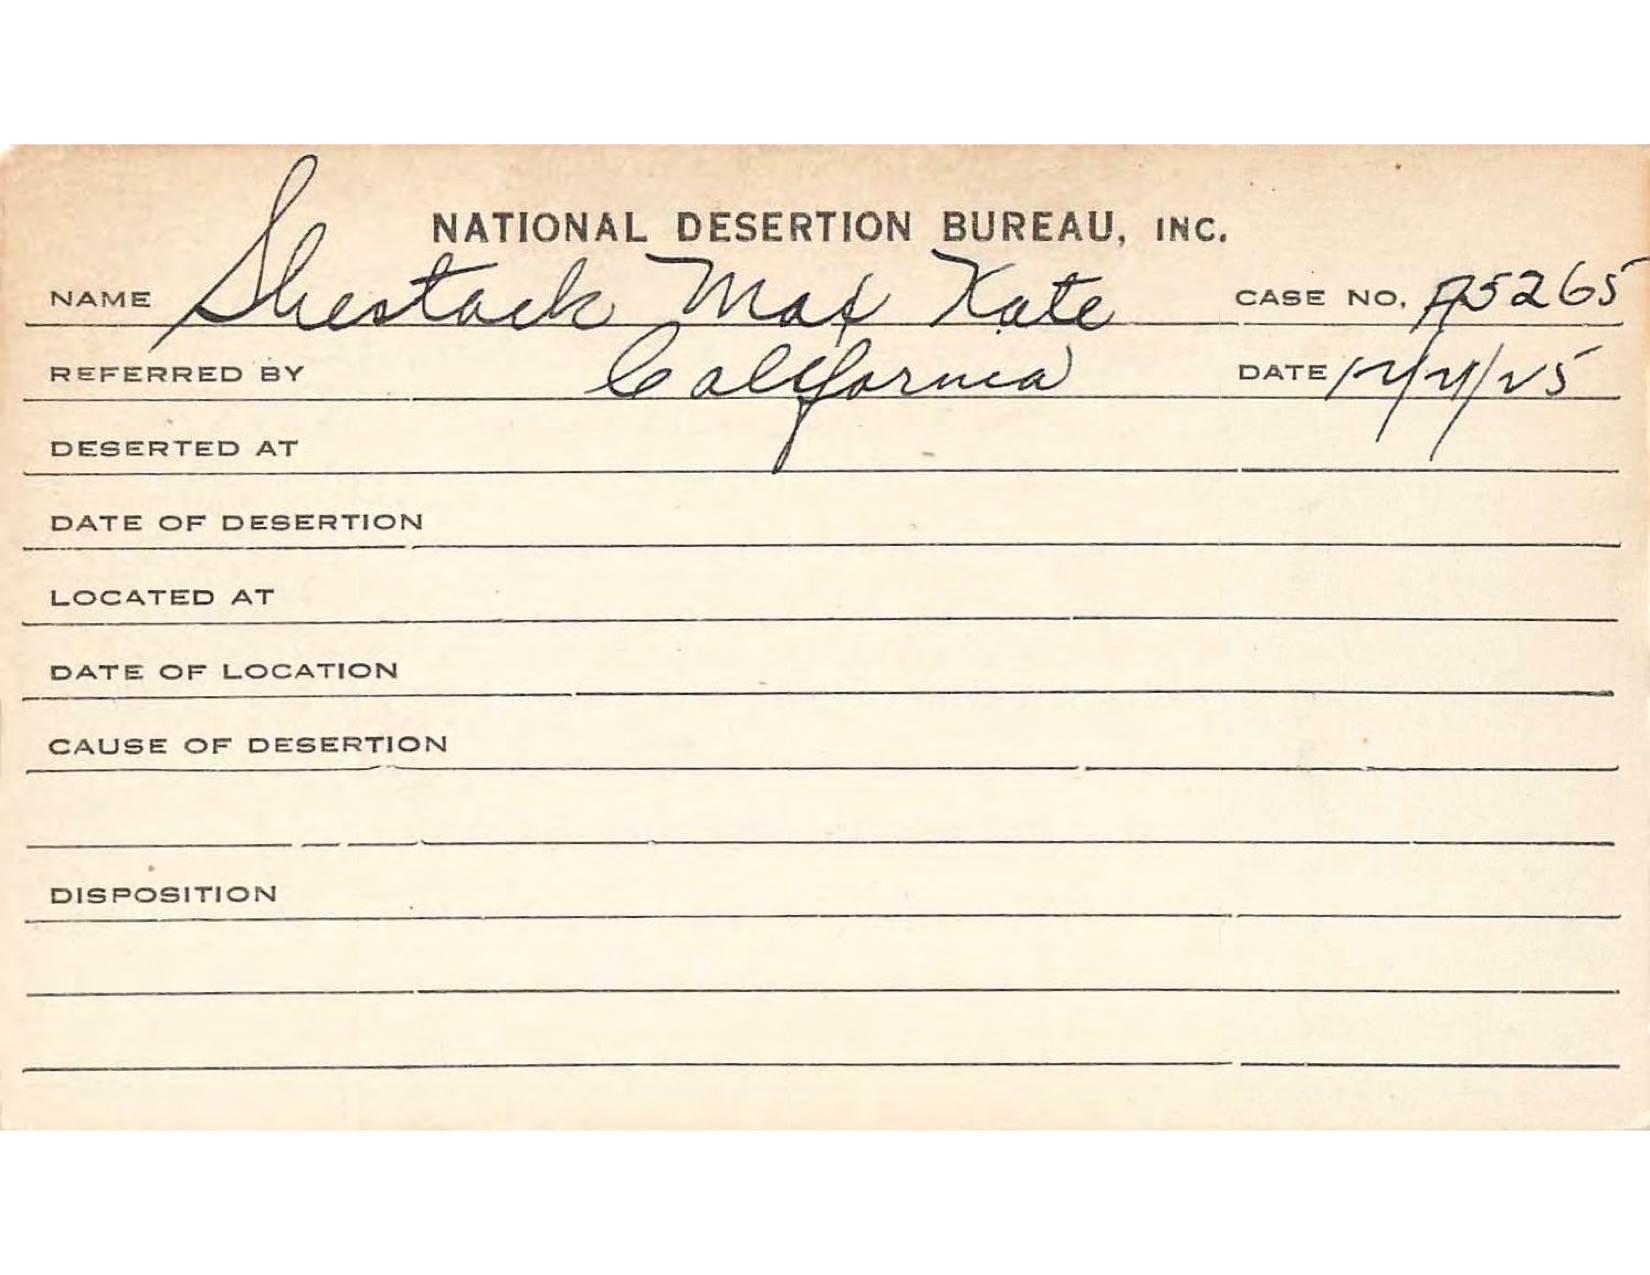 NATIONAL DESERTION BUREAU, INC.
NAME Shestack Max Kate CASE NO. A5265
REFERRED BY California DATE
DESERTED AT
DATE OF DESERTION
LOCATED AT
DATE OF LOCATION
CAUSE OF DESERTION
DISPOSITION